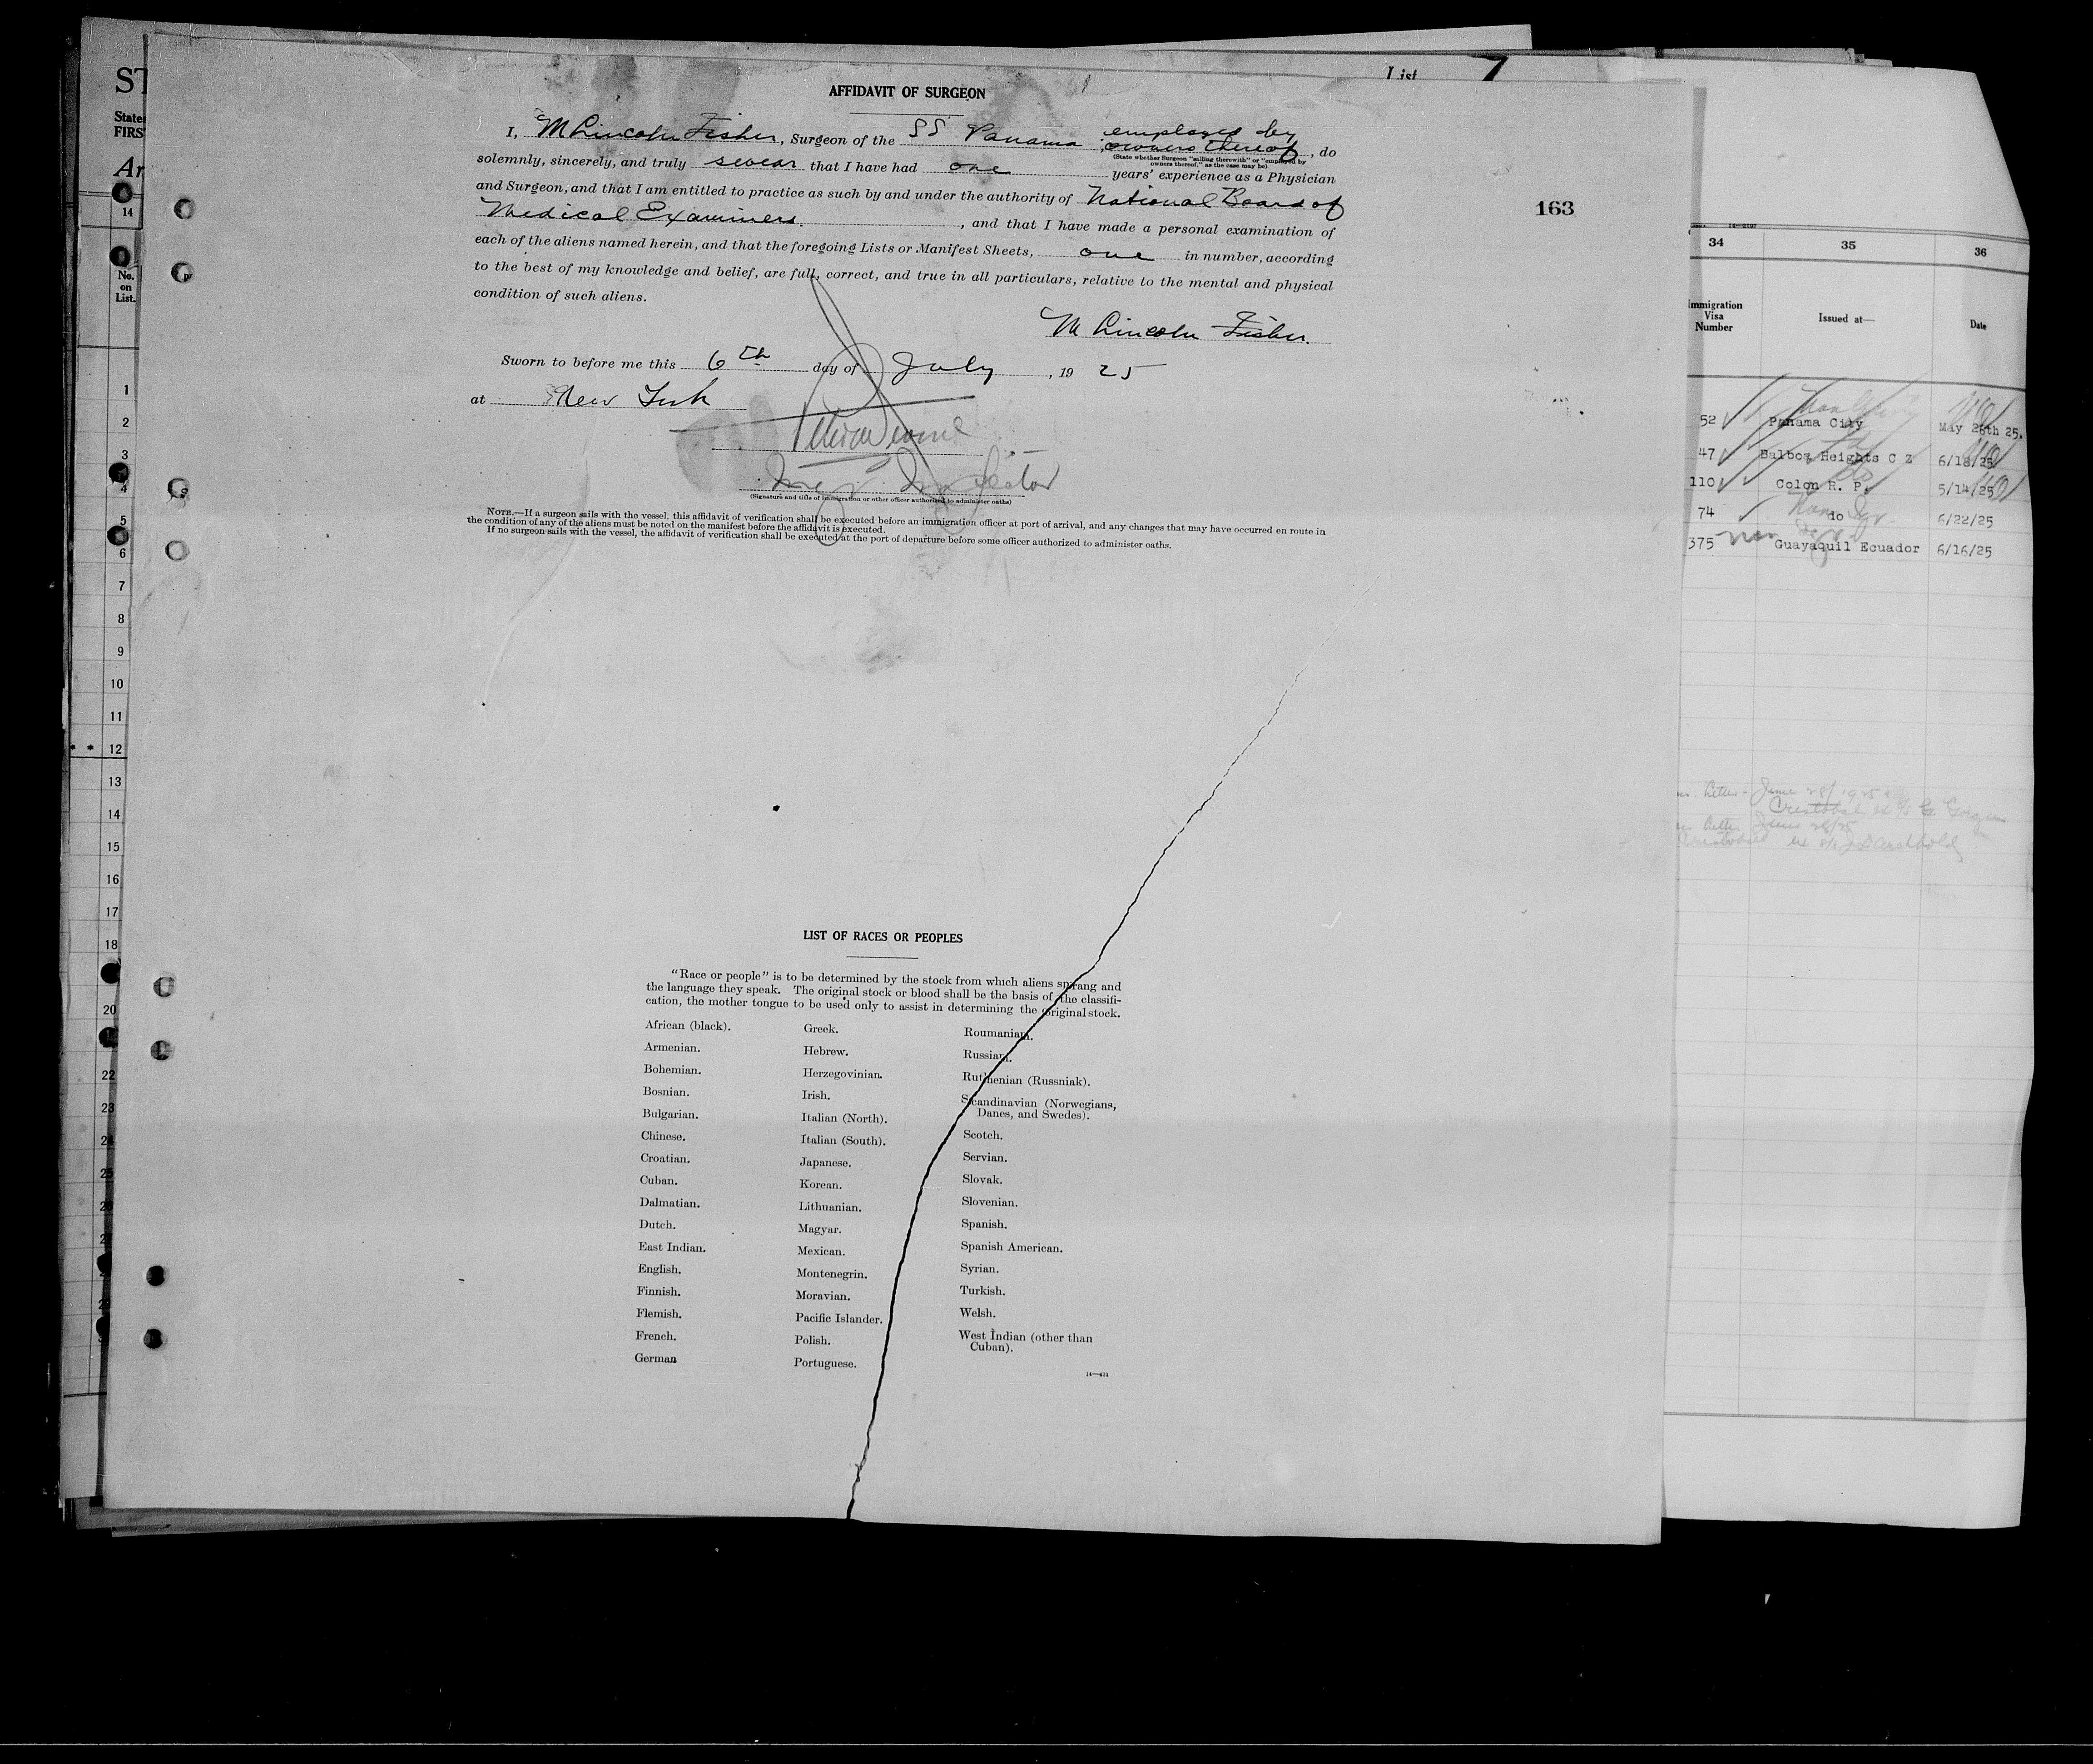 List 7
AFFIDAVIT OF SURGEON
I, M Lincoln Fisher, Surgeon of the SS Panama, employed by owners thereof, do
(State whether Surgeon "sailing therewith" or "employed by
owners thereof," as the case may be)
solemnly, sincerely, and truly swear that I have had one years' experience as a Physician
and Surgeon, and that I am entitled to practice as such by and under the authority of National Board of
Medical Examiners., and that I have made a personal examination of
each of the aliens named herein, and that the foregoing Lists or Manifest Sheets, one in number, according
to the best of my knowledge and belief, are full, correct, and true in all particulars, relative to the mental and physical
condition of such aliens.
M Lincoln Fisher.
Sworn to before me this 6th day of July, 1925
at New York
Inspector
(Signature and title of immigration or other officer authorized to administer oaths)
NOTE.—If a surgeon sails with the vessel, this affidavit of verification shall be executed before an immigration officer at port of arrival, and any changes that may have occurred en route in
the condition of any of the aliens must be noted on the manifest before the affidavit is executed.
If no surgeon sails with the vessel, the affidavit of verification shall be executed at the port of departure before some officer authorized to administer oaths.
163
LIST OF RACES OR PEOPLES
"Race or people" is to be determined by the stock from which aliens sprang and
the language they speak. The original stock or blood shall be the basis of the classifi-
cation, the mother tongue to be used only to assist in determining the original stock.
African (black).
Armenian.
Bohemian.
Bosnian.
Bulgarian.
Chinese.
Croatian.
Cuban.
Dalmatian.
Dutch.
East Indian.
English.
Finnish.
Flemish.
French.
German
Greek.
Hebrew.
Herzegovinian.
Irish.
Italian (North).
Italian (South).
Japanese.
Korean.
Lithuanian.
Magyar.
Mexican.
Montenegrin.
Moravian.
Pacific Islander.
Polish.
Portuguese.
Roumanian.
Russian.
Ruthenian (Russniak).
Scandinavian (Norwegians,
Danes, and Swedes).
Scotch.
Servian.
Slovak.
Slovenian.
Spanish.
Spanish American.
Syrian.
Turkish.
Welsh.
West Indian (other than
Cuban).
14—431
ST
State
FIRS
Ar
14
No.
on
List.
1
2
3
4
5
6
7
8
9
10
11
* * 12
13
14
15
16
17
18
20
22
23
24
25
26
34 35 36
Immigration
Visa
Number
Issued at—
Date
52 Panama City May 28th 25.
47 Balboa Heights C Z 6/18/25
110 Colon R. P. 5/14/25
74 do 6/22/25
375 Guayaquil Ecuador 6/16/25
June 28/1925
Cristobal ex S/S
June 26/25
Cristobal ex S/S J D Archbold